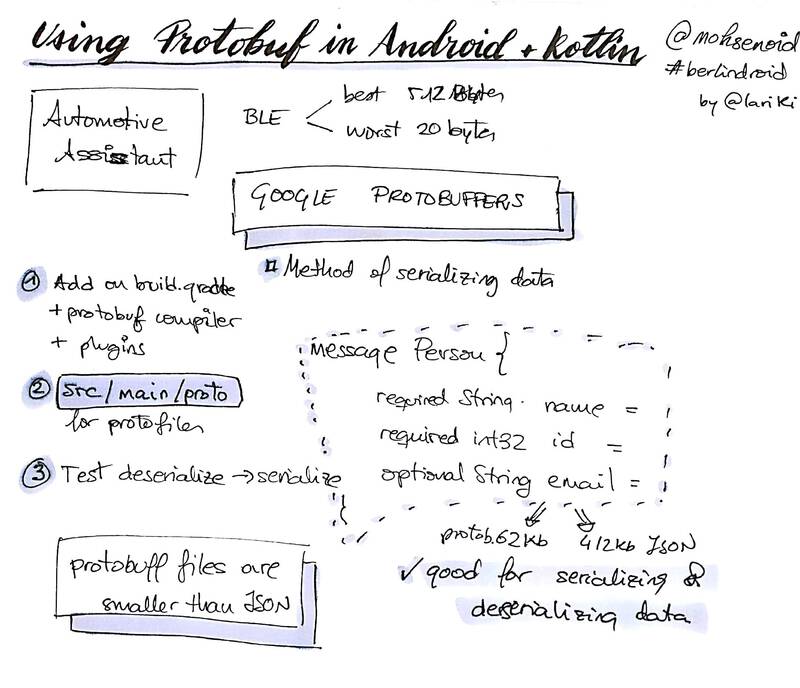 Using Protobuf in Android + Kotlin
@mohsenoid
#berlindroid
by @lariki
Automotive
Assistant
BLE
best 512 Bytes
worst 20 bytes
GOOGLE PROTOBUFFERS
Method of serializing data
1 Add on build.gradle
+ protobuf compiler
+ plugins
2 src/main/proto
for protofiles
3 Test deserialize → serialize
message Person {
required String. name =
required int32 id =
optional String email =
}
protob. 62kb
412kb JSON
✓ good for serializing &
deserializing data
protobuff files are
smaller than JSON